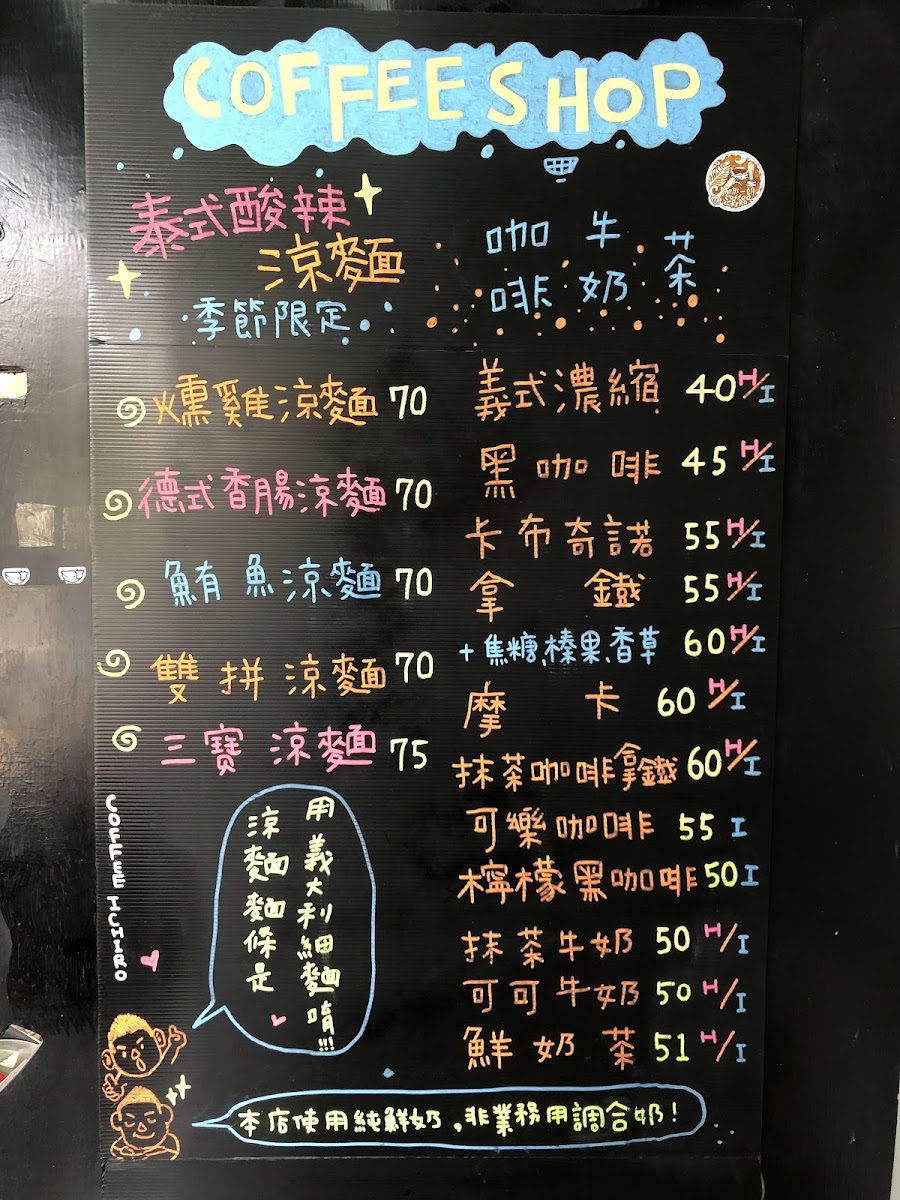 COFFEE SHOP
泰式酸辣
涼麵
季節限定
燻雞涼麵 70
德式香腸涼麵 70
鮪魚涼麵 70
雙拼涼麵 70
三寶涼麵 75
咖啡
牛奶
茶
義式濃縮 40 H/I
黑咖啡 45 H/I
卡布奇諾 55 H/I
拿鐵 55 H/I
+焦糖、榛果、香草 60 H/I
摩卡 60 H/I
抹茶咖啡拿鐵 60 H/I
可樂咖啡 55 I
檸檬黑咖啡 50 I
抹茶牛奶 50 H/I
可可牛奶 50 H/I
鮮奶茶 51 H/I
COFFEE ICHIRO
涼麵麵條是
用義大利細麵唷!!!
本店使用純鮮奶,非業務用調合奶!